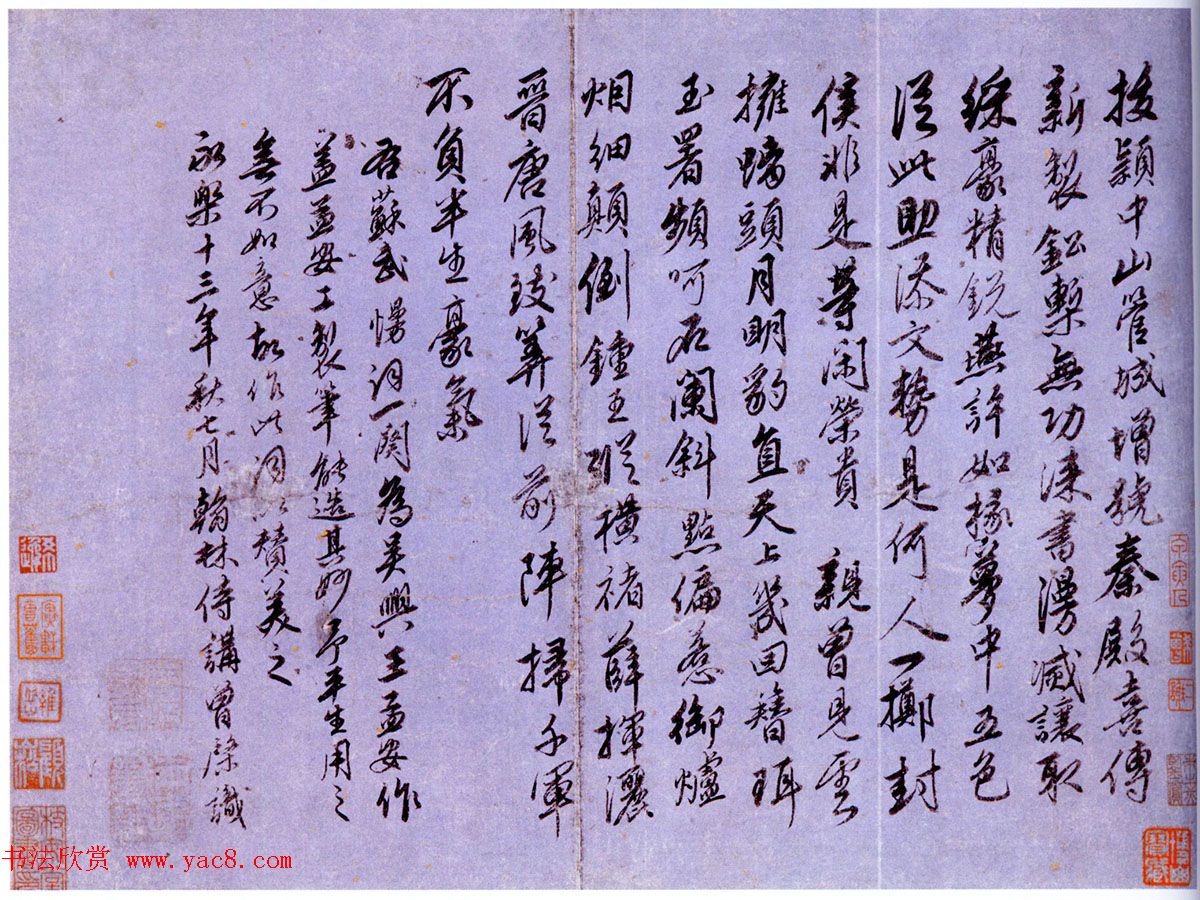 拔穎中山管城增號秦殿喜傳
新製鉛槧無功漆書漫滅讓取
綵豪精銳燕許如椽夢中五色
從此助添文勢是何人一擲封
侯非是等閑榮貴 親曾見雲
擁螭頭月明豹直天上幾回簪珥
玉署頻呵石闌斜點偏惹御爐
烟細顛倒鍾王縱橫褚薛揮灑
晉唐風致筭從前陣掃千軍
不負半生豪氣
右蘇武慢詞一闋為吳興王孟安作
蓋孟安工製筆能造其妙予平生用之
無不如意故作此詞以贊美之
永樂十三年秋七月翰林侍講曾棨識
书法欣赏 www.yac8.com